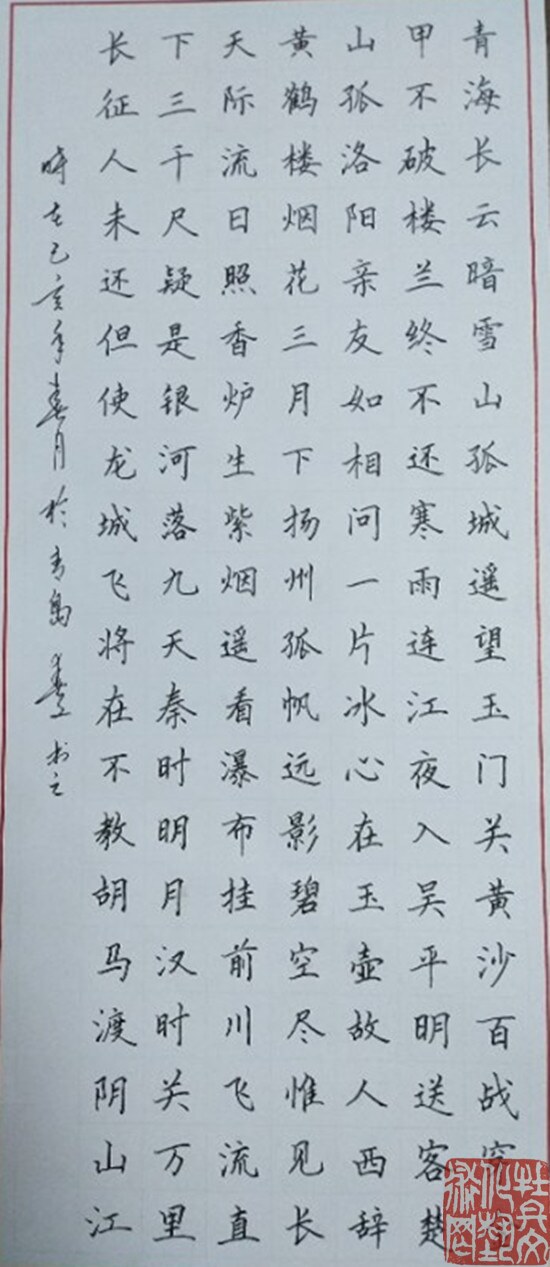 青海长云暗雪山孤城遥望玉门关黄沙百战穿
甲不破楼兰终不还寒雨连江夜入吴平明送客楚
山孤洛阳亲友如相问一片冰心在玉壶故人西辞
黄鹤楼烟花三月下扬州孤帆远影碧空尽惟见长
天际流日照香炉生紫烟遥看瀑布挂前川飞流直
下三千尺疑是银河落九天秦时明月汉时关万里
长征人未还但使龙城飞将在不教胡马渡阴山江
時在己亥年春月於青岛书之